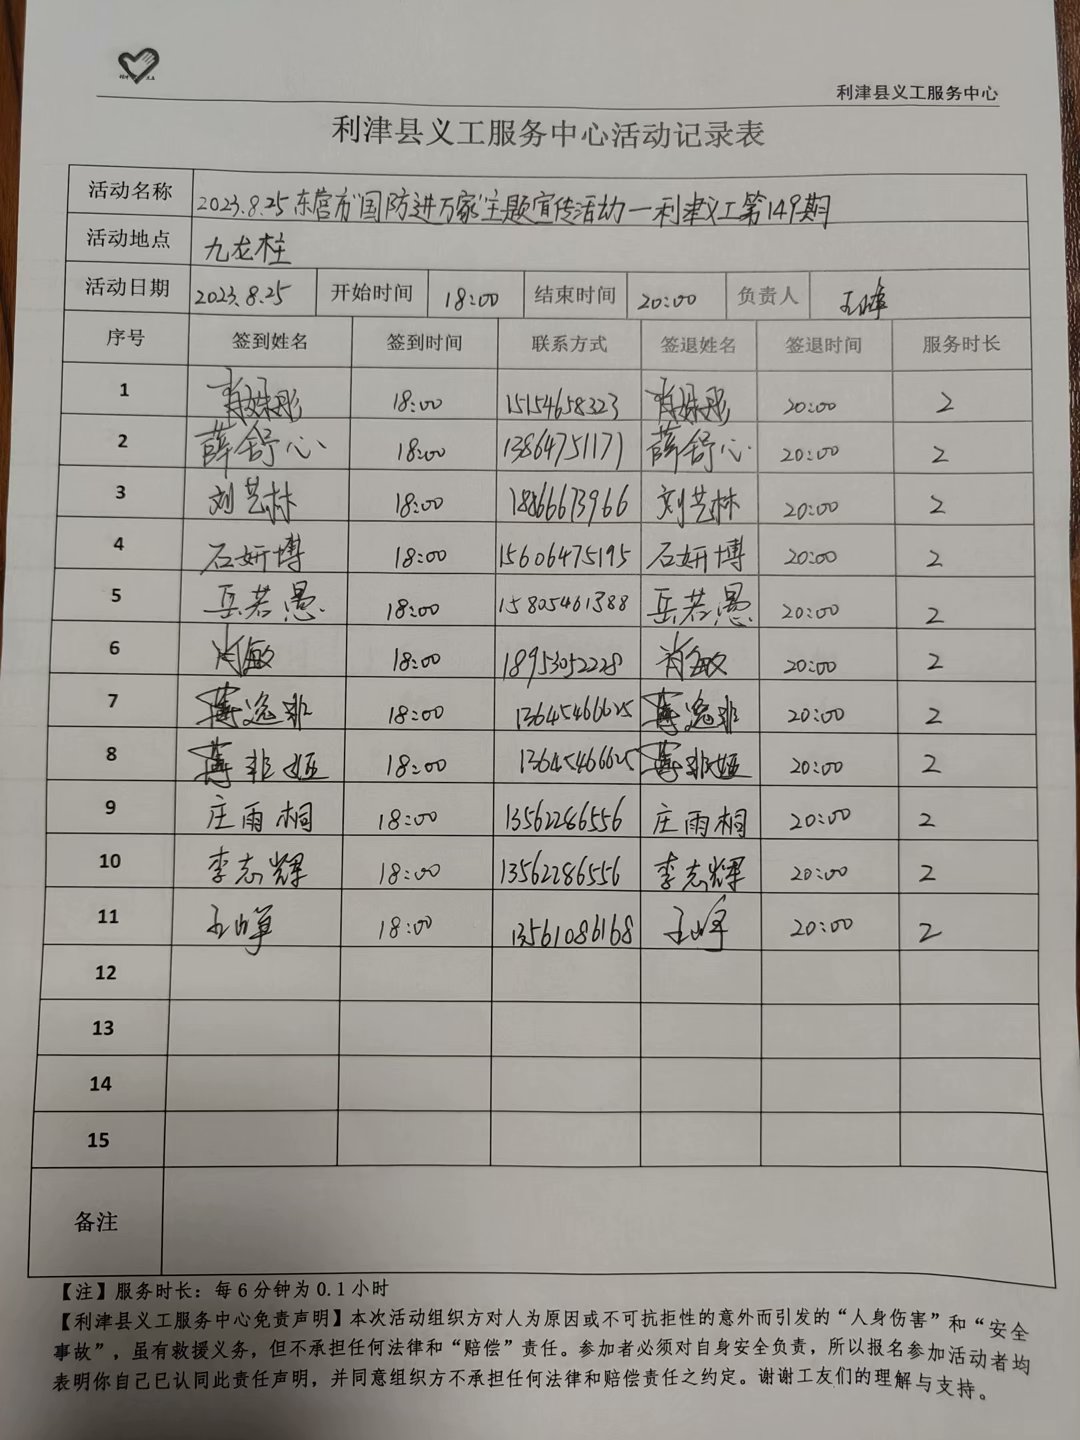 利津县义工服务中心
利津县义工服务中心活动记录表
活动名称 2023.8.25东营市"国防进万家"主题宣传活动—利津义工第149期
活动地点 九龙柱
活动日期 2023.8.25 开始时间 18:00 结束时间 20:00 负责人 王峰
序号 签到姓名 签到时间 联系方式 签退姓名 签退时间 服务时长
1 18:00 15154658323 20:00 2
2 薛舒心 18:00 13864751171 薛舒心 20:00 2
3 刘艺林 18:00 18866673966 刘艺林 20:00 2
4 石妍博 18:00 15606475195 石妍博 20:00 2
5 岳若愚 18:00 15805461388 岳若愚 20:00 2
6 18:00 18953052228 肖敏 20:00 2
7 薄逸非 18:00 13645466625 薄逸非 20:00 2
8 薄非娅 18:00 13645466625 薄非娅 20:00 2
9 庄雨桐 18:00 13562286556 庄雨桐 20:00 2
10 李志辉 18:00 13562286556 李志辉 20:00 2
11 王峰 18:00 13561086168 王峰 20:00 2
12
13
14
15
备注
【注】服务时长：每6分钟为0.1小时
【利津县义工服务中心免责声明】本次活动组织方对人为原因或不可抗拒性的意外而引发的“人身伤害”和“安全
事故”，虽有救援义务，但不承担任何法律和“赔偿”责任。参加者必须对自身安全负责，所以报名参加活动者均
表明你自己已认同此责任声明，并同意组织方不承担任何法律和赔偿责任之约定。谢谢工友们的理解与支持。